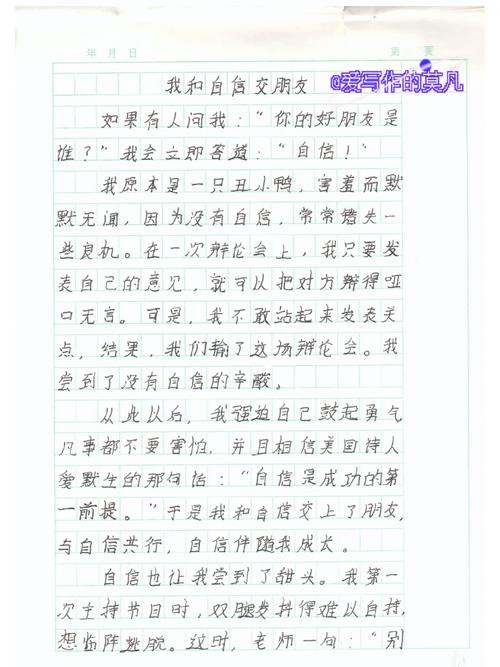 年 月 日
第 页
@爱写作的莫凡
我和自信交朋友
如果有人问我：“你的好朋友是
谁？”我会立即答道：“自信！”
我原本是一只丑小鸭，害羞而默
默无闻，因为没有自信，常常错失一
些良机。在一次辩论会上，我只要发
表自己的意见，就可以把对方辩得哑
口无言。可是，我不敢站起来发表关
点，结果，我们输了这场辩论会。我
尝到了没有自信的辛酸。
从此以后，我强迫自己鼓起勇气
凡事都不要害怕，并且相信美国诗人
爱默生的那句话：“自信是成功的第
一前提。”于是我和自信交上了朋友，
与自信共行，自信伴随我成长。
自信也让我尝到了甜头。我第一
次主持节目时，双腿发抖得难以自持，
想临阵逃脱。这时，老师一句：“别